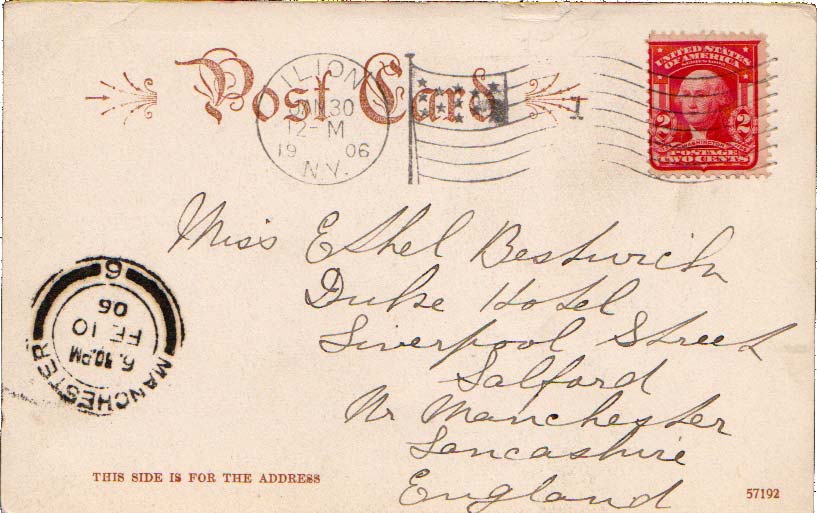 Post Card
ILION
JAN 30
12-M
1906
N.Y.
1
UNITED STATES
OF AMERICA
2 2
POSTAGE
TWO CENTS
Miss Ethel Bestwich
Duke Hotel
Liverpool Street
Salford
Nr Manchester
Lancashire
England
MANCHESTER
6.30.PM
FE 10
06
6
THIS SIDE IS FOR THE ADDRESS
57192